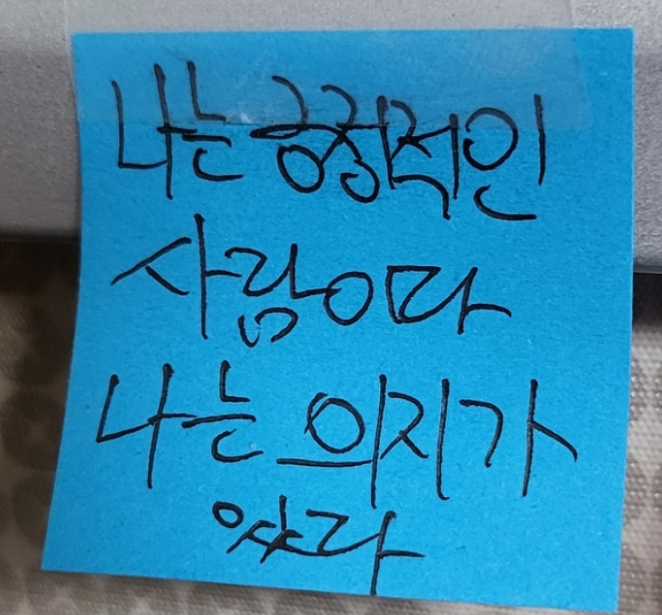 나는 긍정적인
사람이다
나는 의지가
있다